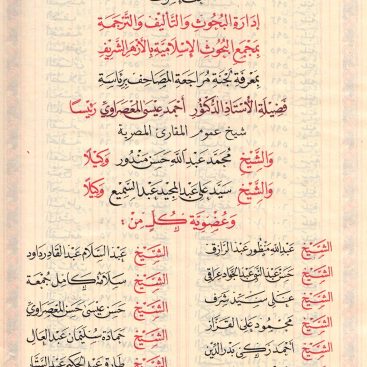 إدارة البحوث والتأليف والترجمة
بمجمع البحوث الإسلامية بالأزهر الشريف
بمعرفة لجنة مراجعة المصاحف برئاسة
فضيلة الأستاذ الدكتور أحمد عيسى المعصراوي رئيسا
شيخ عموم المقارئ المصرية
والشيخ محمد عبد الله حسن مندور وكيلا
والشيخ سيد علي عبد المجيد عبد السميع وكيلا
وعضوية كل من:
الشيخ عبد الله منظور عبد الرازق
الشيخ حسن عبد النبي عبد الجواد عراقي
الشيخ علي سيد شرف
الشيخ محمود علي القزاز
الشيخ أحمد زكي بدر الدين
الشيخ عبد السلام عبد القادر داود
الشيخ سلامة كامل جمعة
الشيخ حسن عيسى حسن المعصراوي
الشيخ حمادة سليمان عبد العال
الشيخ